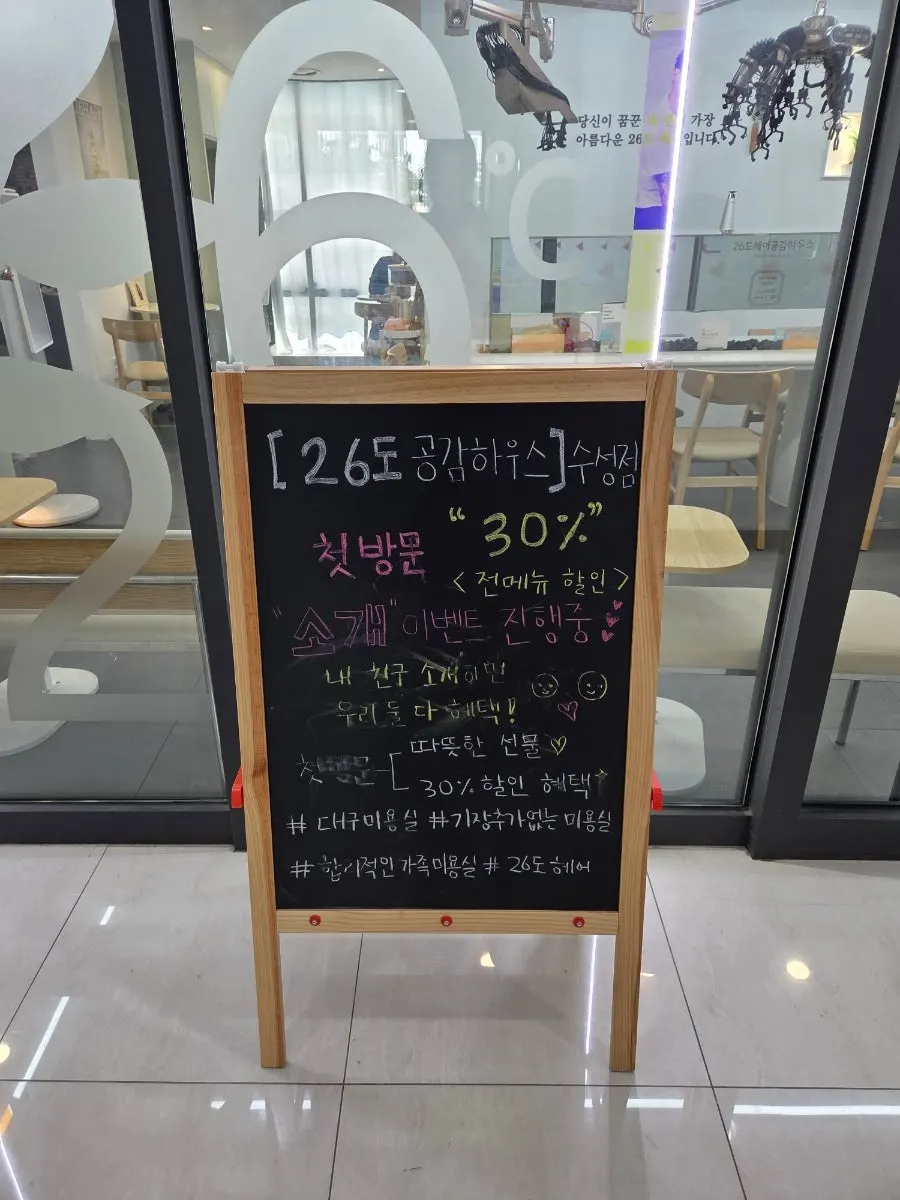 당신이 꿈꾼 가장
아름다운 26 입니다.
26도헤어공감하우스
℃
[26도 공감하우스]수성점
첫방문 “30%”
<전메뉴 할인>
"소개" 이벤트 진행중
내 친구 소개하면
우리 둘 다 혜택!
첫방문 [ 따뜻한 선물
30% 할인 혜택
# 대구미용실 #기장추가없는 미용실
# 합리적인가족미용실 # 26도헤어